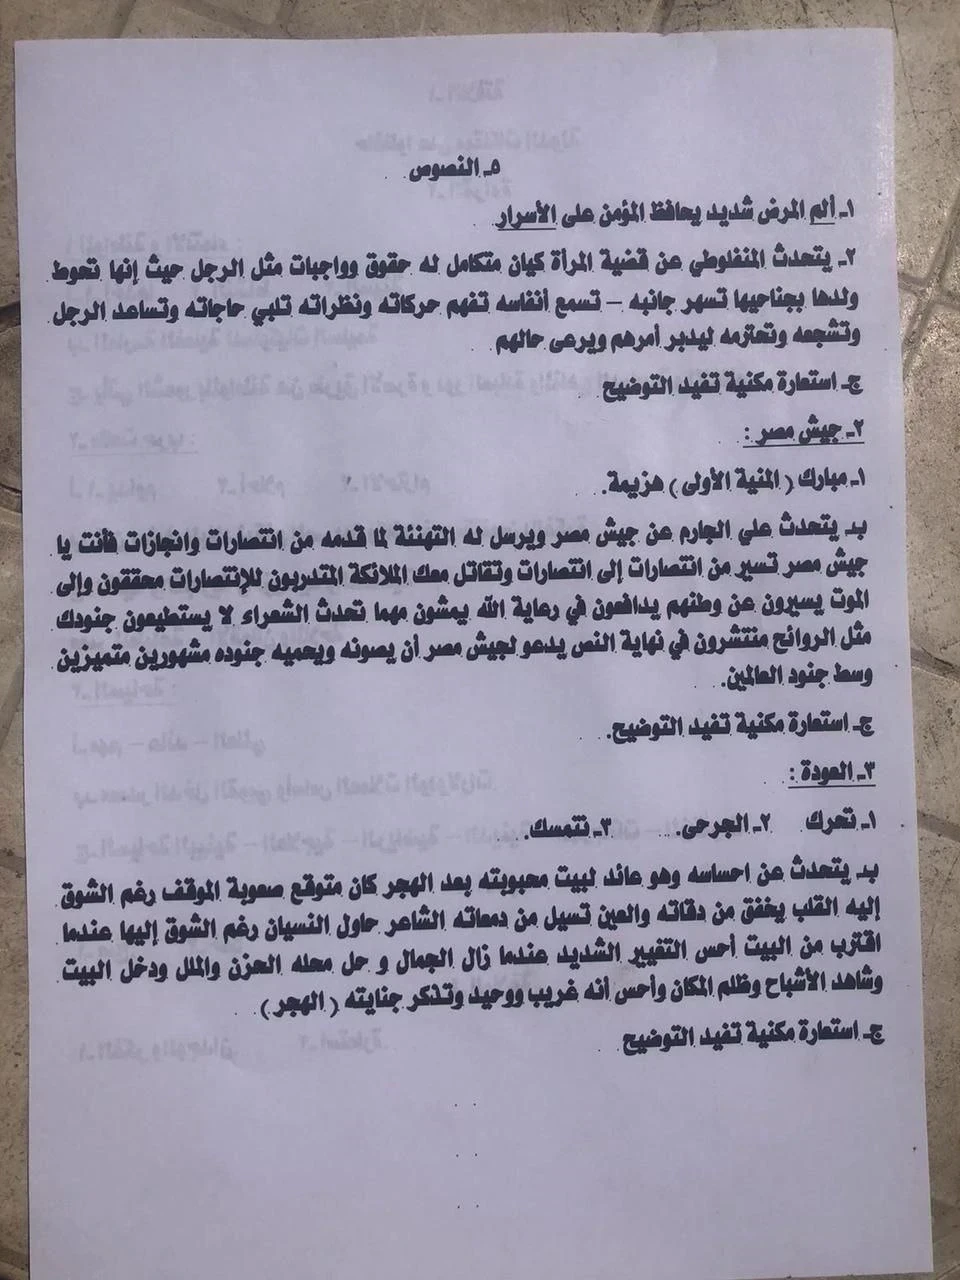 ٥ـ النصوص
١ـ ألم المرض شديد يحافظ المؤمن على الأسرار
٢ـ يتحدث المنفلوطي عن قضية المرأة كيان متكامل له حقوق وواجبات مثل الرجل حيث إنها تحوط
ولدها بجناحيها تسهر جانبه – تسمع أنفاسه تفهم حركاته ونظراته تلبي حاجاته وتساعد الرجل
وتشجعه وتحترمه ليدبر أمرهم ويرعى حالهم
ج‍ـ استعارة مكنية تفيد التوضيح
٢ـ جيش مصر :
١ـ مبارك ( المنية الأولى ) هزيمة.
بـ يتحدث علي الجارم عن جيش مصر ويرسل له التهنئة لما قدمه من انتصارات وانجازات فأنت يا
جيش مصر تسير من انتصارات إلى انتصارات وتقاتل معك الملائكة المتدربون للإنتصارات محققون وإلى
الموت يسيرون عن وطنهم يدافعون في رعاية الله يمشون مهما تحدث الشعراء لا يستطيعون جنودك
مثل الروائح منتشرون في نهاية النص يدعو لجيش مصر أن يصونه ويحميه جنوده مشهورين متميزين
وسط جنود العالمين.
ج‍ـ استعارة مكنية تفيد التوضيح.
٣ـ العودة :
١ـ تحرك ٢ـ الجرحى. ٣ـ تتمسك.
بـ يتحدث عن احساسه وهو عائد لبيت محبوبته بعد الهجر كان متوقع صعوبة الموقف رغم الشوق
إليه القلب يخفق من دقاته والعين تسيل من دمعاته الشاعر حاول النسيان رغم الشوق إليها عندما
اقترب من البيت أحس التغيير الشديد عندما زال الجمال و حل محله الحزن والملل ودخل البيت
وشاهد الأشباح وظلم المكان وأحس أنه غريب ووحيد وتذكر جنايته ( الهجر ).
ج‍ـ استعارة مكنية تفيد التوضيح